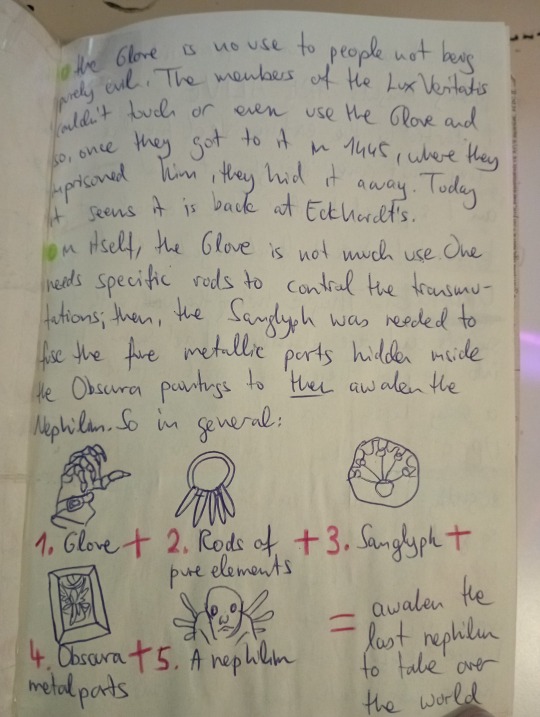 the Glove is no use to people not being
purely evil. The members of the Lux Veritatis
couldn't touch or even use the Glove and
so, once they got to it in 1445, where they
imprisoned him, they hid it away. Today
it seems it is back at Eckhardt's.
In itself, the Glove is not much use. One
needs specific rods to control the transmu-
tations; then, the Sanglyph was needed to
fuse the five metallic parts hidden inside
the Obscura paintings to then awaken the
Nephilim. So in general:
1. Glove + 2. Rods of pure elements + 3. Sanglyph +
4. Obscura metal parts + 5. A nephilim
= awaken the
last nephilim
to take over
the world